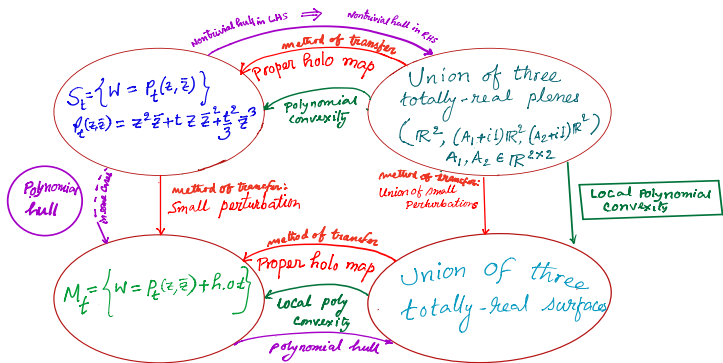 Nontrivial hull in LHS ⇒ Nontrivial hull in RHS
method of transfer
Proper holo map
S_t = { W = P_t(z, z̄) }
P_t(z, z̄) = z² z̄ + t z z̄² + t²/3 z̄³
Polynomial
convexity
Union of three
totally-real planes
(ℝ², (A₁+iI)ℝ², (A₂+iI)ℝ²)
A₁, A₂ ∈ ℝ^{2×2}
Polynomial
hull
in some cases
method of transfer:
Small perturbation
method of transfer:
Union of small
Perturbations
Local Polynomial
Convexity
method of transfer
Proper holo map
M_t = { W = P_t(z, z̄) + h.o.t }
Local poly
Convexity
Polynomial hull
Union of three
totally-real surfaces